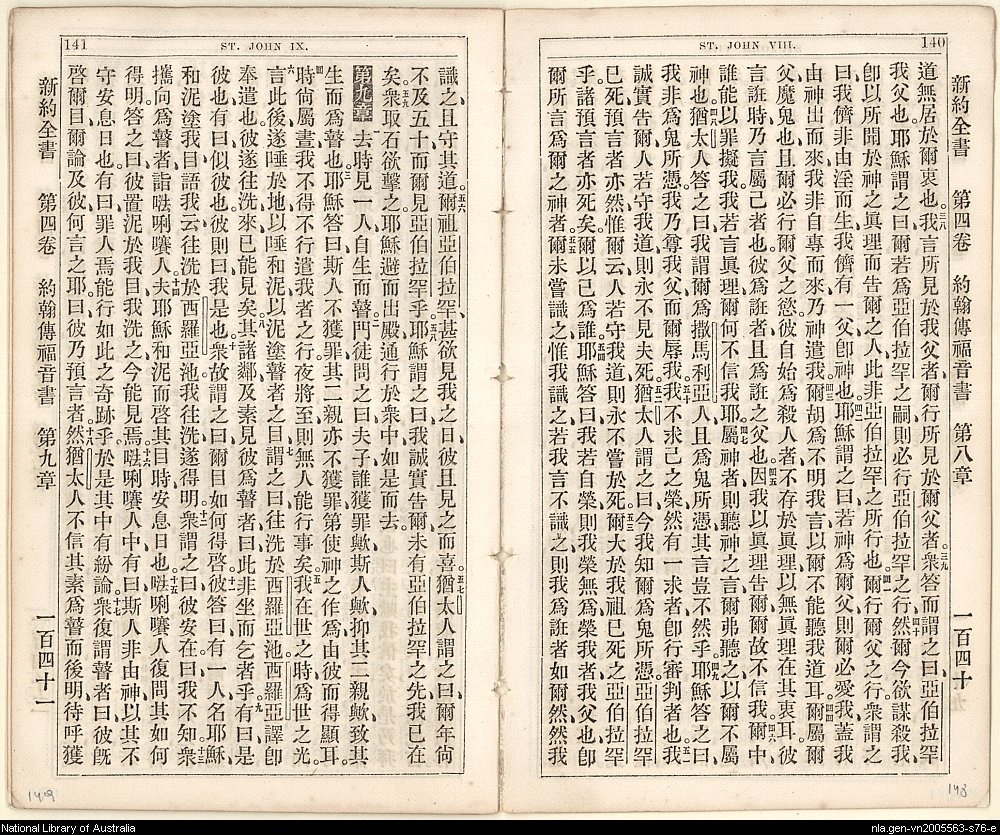 140
ST. JOHN VIII.
新約全書 第四卷 約翰傳福音書 第八章 一百四十
道無居於爾衷也、三八我言所見於我父者、爾行所見於爾父者、三九衆答而謂之曰、亞伯拉罕
我父也、耶穌謂之曰、爾若爲亞伯拉罕之嗣、則必行亞伯拉罕之行、四十然爾今欲謀殺我、
卽以所聞於神之眞理而告爾之人、此非亞伯拉罕之所行也、四一爾行爾父之行、衆謂之
曰、我儕非由淫而生、我儕有一父、卽神也、四二耶穌謂之曰、若神爲爾父、則爾必愛我、蓋我
由神出而來、我非自專而來、乃神遣我、四三爾胡爲不明我言、以爾不能聽我道耳、四四爾屬爾
父魔鬼也、且爾必行爾父之慾、彼自始爲殺人者、不存於眞理、以無眞理在其衷耳、彼
言誑時、乃言屬己者也、彼爲誑者、且爲誑之父也、四五因我以眞理告爾、爾故不信我、四六爾中
誰能以罪擬我、我若言眞理、爾何不信我耶、四七屬神者、則聽神之言、爾弗聽之、以爾不屬
神也、四八猶太人答之曰、我謂爾爲撒馬利亞人、且爲鬼所憑、其言豈不然乎、四九耶穌答之曰、
我非爲鬼所憑、我乃尊我父、而爾辱我、五十我不求己之榮、然有一求者、卽行審判者也、五一我
誠實告爾、人若守我道、則永不見夫死、五二猶太人謂之曰、今我知爾爲鬼所憑、亞伯拉罕
已死、諸預言者亦然、惟爾云、人若守我道、則永不嘗於死、五三爾大於我祖已死之亞伯拉罕
乎、諸預言者亦死矣、爾以己爲誰、五四耶穌答曰、我若自榮、則我榮無爲、榮我者我父也、卽
爾所言爲爾之神者、五五爾未嘗識之、惟我識之、若我言不識之、則我爲誑者、如爾然、然我
141
ST. JOHN IX.
識之、且守其道、五六爾祖亞伯拉罕、甚欲見我之日、彼且見之而喜、五七猶太人謂之曰、爾年尙
不及五十、而爾見亞伯拉罕乎、五八耶穌謂之曰、我誠實告爾、未有亞伯拉罕之先、我已在
矣、五九衆取石欲擊之、耶穌避而出殿、通行於衆中、如是而去、
第九章 一去時、見一人自生而瞽、二門徒問之曰、夫子、誰獲罪歟、斯人歟、抑其二親歟、致其
生而爲瞽也、三耶穌答曰、斯人不獲罪、其二親亦不獲罪、第使神之作爲、由彼而得顯耳、
四時尙屬晝、我不得不行遣我者之行、夜將至、則無人能行事矣、五我在世之時、爲世之光、
六言此後、遂唾於地、以唾和泥、以泥塗瞽者之目、七謂之曰、往洗於西羅亞池、西羅亞譯卽
奉遣也、彼遂往洗、來已能見矣、八其諸鄰及素見彼爲瞽者曰、此非坐而乞者乎、九有曰、是
彼也、有曰、似彼也、彼則曰、我是也、十衆故謂之曰、爾目如何得啓、十一彼答曰、有一人名耶穌、
和泥塗我目、語我云、往洗於西羅亞池、我往洗、遂得明、十二衆謂之曰、彼安在、曰、我不知、十三衆
攜向爲瞽者、詣㗶唎嚷人、十四夫耶穌和泥而啓其目時、安息日也、十五㗶唎嚷人復問其如何
得明、答之曰、彼置泥於我目、我洗之、今能見焉、十六㗶唎嚷人中有曰、斯人非由神、以其不
守安息日也、有曰、罪人焉能行如此之奇跡乎、於是其中有紛論、十七衆復謂瞽者曰、彼旣
啓爾目、爾論及彼何言之耶、曰、彼乃預言者、十八然猶太人不信其素爲瞽而後明、待呼獲
新約全書 第四卷 約翰傳福音書 第九章 一百四十一
149
148
National Library of Australia
nla.gen-vn2005563-s76-e